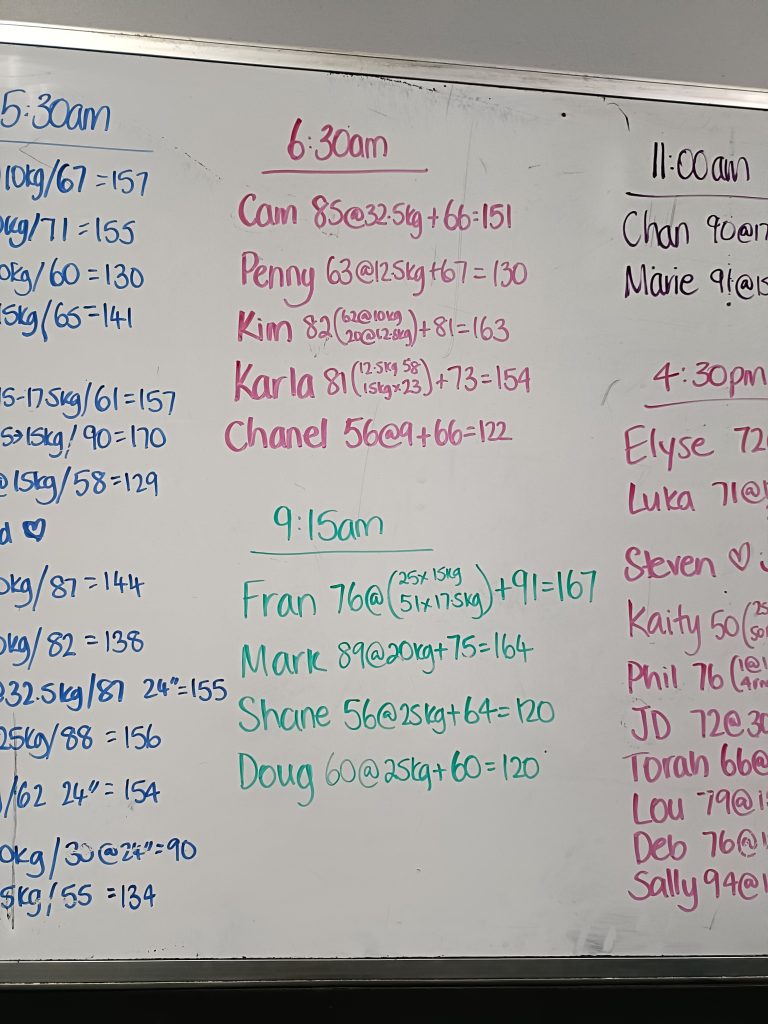 5:30am
10kg/67 = 157
kg/71 = 155
0kg/60 = 130
15kg/65 = 141
15-17.5kg/61 = 157
5→15kg/90 = 170
@15kg/58 = 129
d ♡
0kg/87 = 144
0kg/82 = 138
@32.5kg/87 24" = 155
25kg/88 = 156
/62 24" = 154
0kg/30 @ 24" = 90
5kg/55 = 134
6:30am
Cam 85@32.5kg + 66 = 151
Penny 63@12.5kg + 67 = 130
Kim 82 (62@10kg
20@12.5kg) + 81 = 163
Karla 81 (12.5kg 58
15kg x 23) + 73 = 154
Chanel 56@9 + 66 = 122
9:15am
Fran 76@ (25 x 15kg
51 x 17.5kg) + 91 = 167
Mark 89@20kg + 75 = 164
Shane 56@25kg + 64 = 120
Doug 60@25kg + 60 = 120
11:00am
Chan 90@17
Marie 91@15
4:30pm
Elyse 72
Luka 71@
Steven ♡
Kaity 50 (25
50
Phil 76 (1@1
JD 72@30
Torah 66@
Lou 79@1
Deb 76@1
Sally 94@1